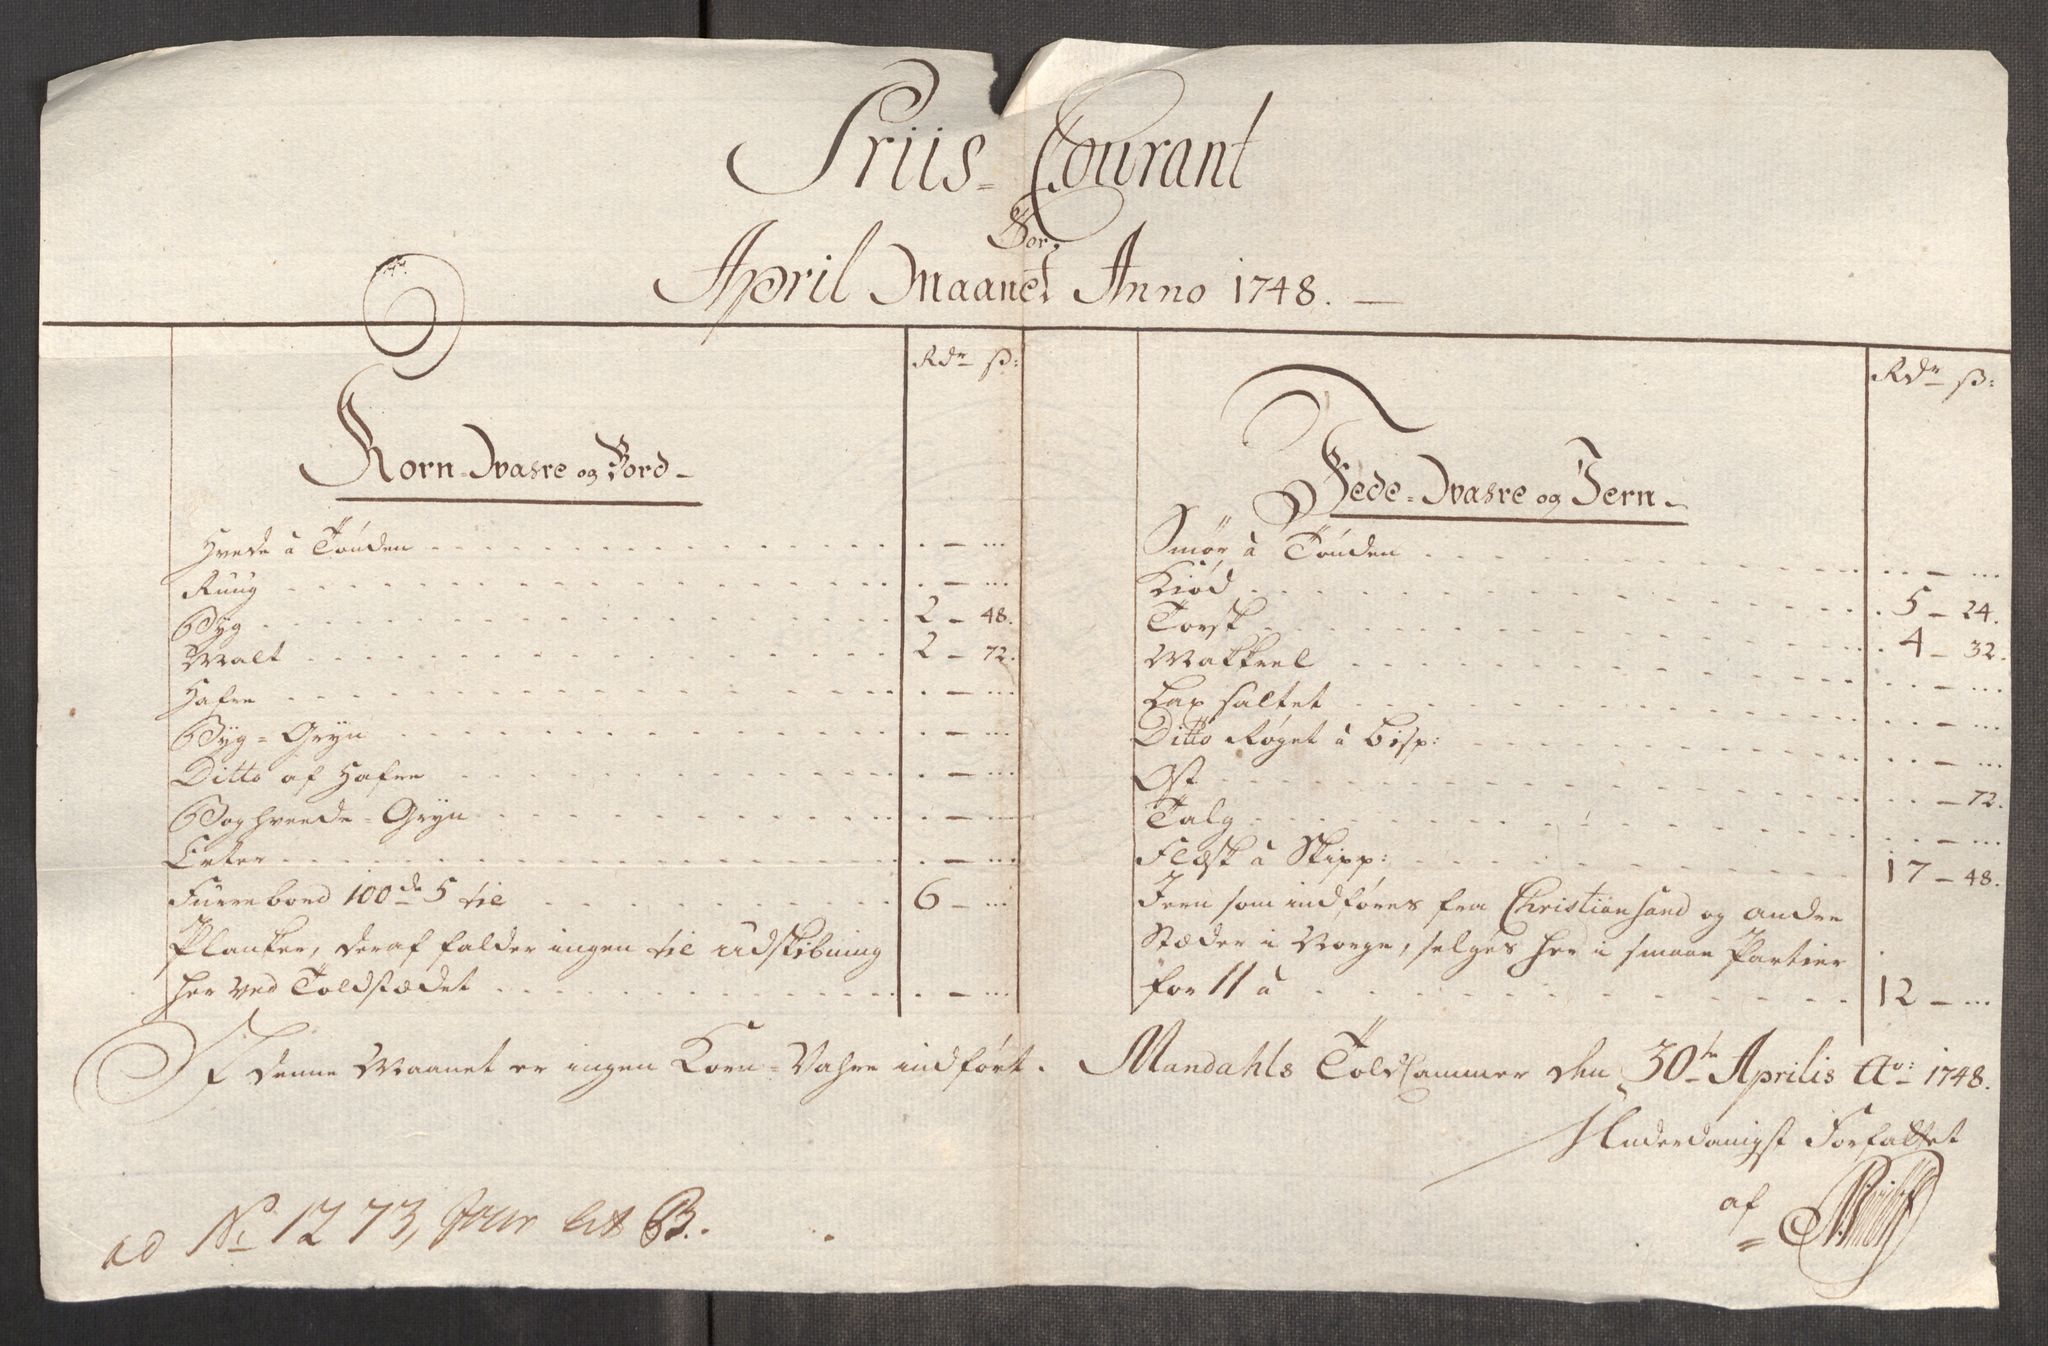 Priis=Courant
For
April Maanet Anno 1748. —
Rdr ß:
Korn=Wahre og Bord-
Hvede à Tönden . — ...
Ruug . — ...
Byg 2 — 48.
Malt 2 — 72.
Hafre . — ...
Byg=Gryn . — ...
Ditto af Hafre . — ...
Boghveede=Gryn . — ...
Erter . — ...
Furrebord 100de 5 til 6 — ...
Planker, deraf falder ingen til udskibning
her ved Toldstædet . — ...
Rdr ß:
Fede=Wahre og Jern-
Smör à Tönden . . — ...
Kiød . 5 — 24.
Torsk . 4 — 32.
Makreel . . — ...
Lax saltet . . — ...
Ditto Røget à bisp: . . — ...
Ost . . — 72.
Talg . . — ...
Flæsk à Skipp: 17 — 48.
Jern som indføres fra Christiansand og andre
Stæder i Norge, selges her i smaae Partier
for 11 à 12 — ...
I denne Maanet er ingen Korn=Vahre indført.
Mandahls Told Cammer den 30te Aprilis Ao: 1748.
Underdanigst Forfattet
af
ad No 1273, Jour Lit B.